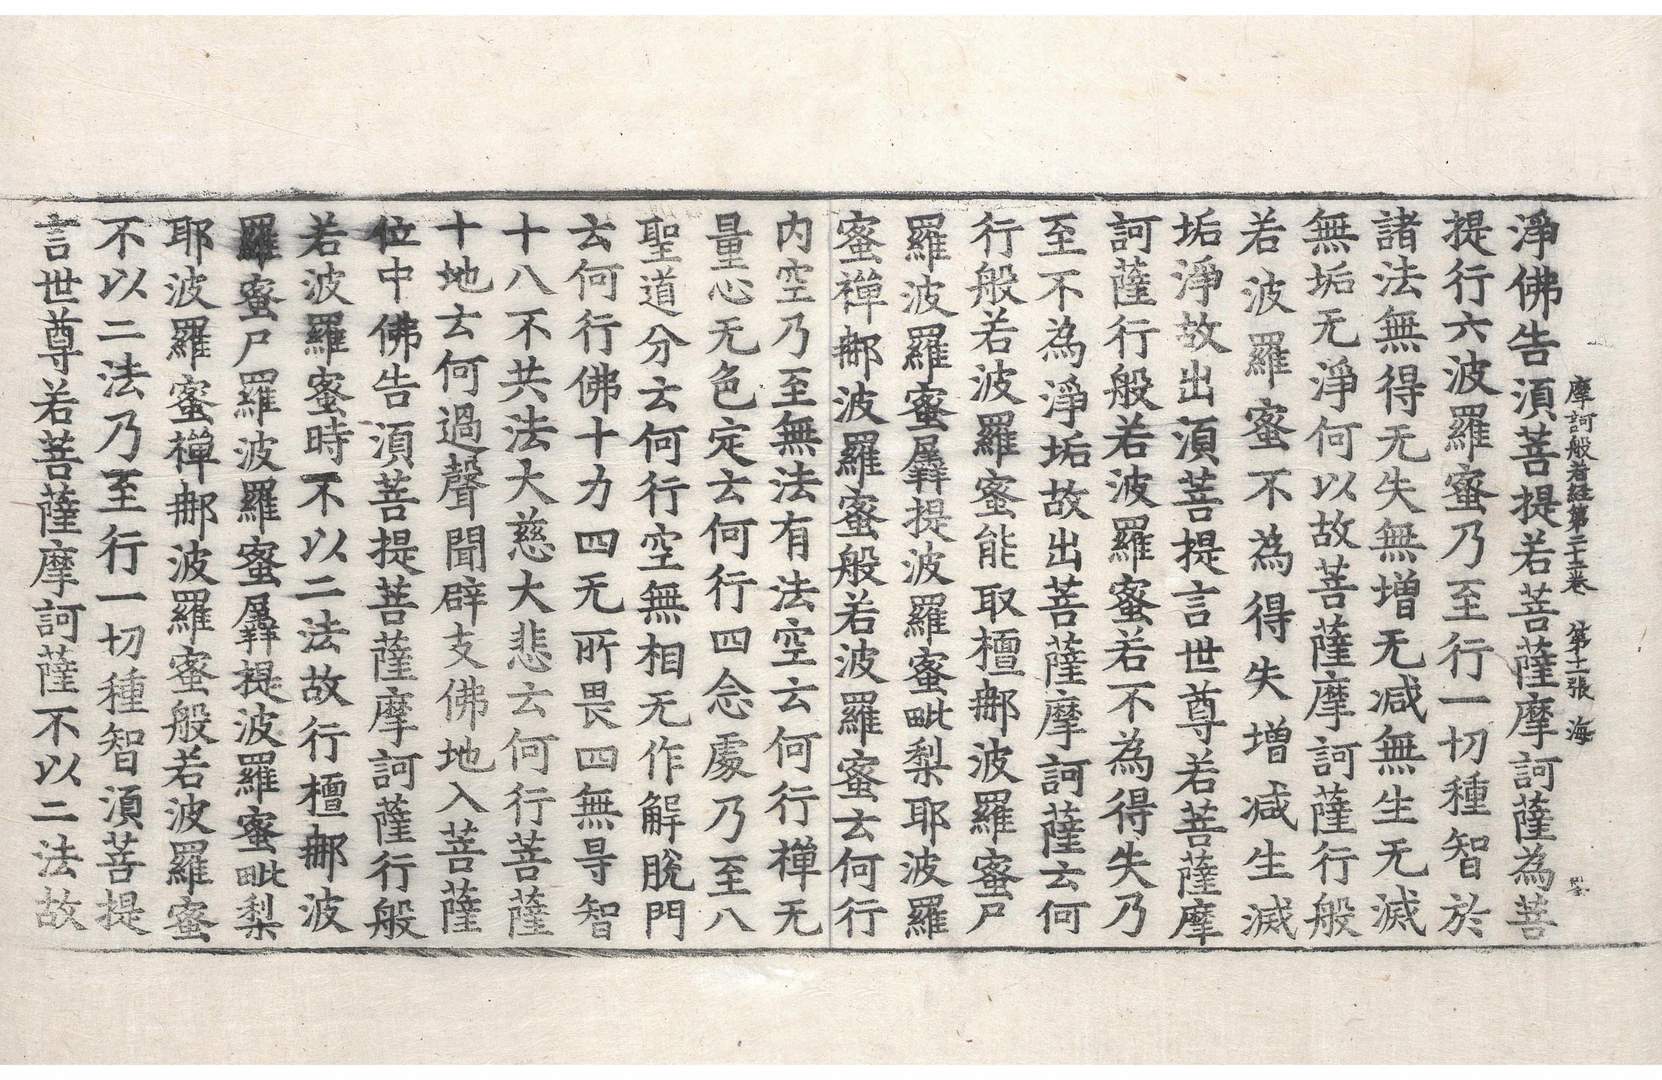 摩訶般若経第二十二卷　第十一張　海
淨佛告湏菩提若菩薩摩訶薩為菩
提行六波羅蜜乃至行一切種智於
諸法無得无失無增无减無生无滅
無垢无淨何以故菩薩摩訶薩行般
若波羅蜜不為得失增减生滅
垢淨故出湏菩提言世尊若菩薩摩
訶薩行般若波羅蜜若不為得失乃
至不為淨垢故出菩薩摩訶薩云何
行般若波羅蜜能取檀那波羅蜜尸
羅波羅蜜羼提波羅蜜毗梨耶波羅
蜜禪那波羅蜜般若波羅蜜云何行
内空乃至無法有法空云何行禪无
量心无色定云何行四念處乃至八
聖道分云何行空無相无作解脫門
云何行佛十力四无所畏四無㝵智
十八不共法大慈大悲云何行菩薩
十地云何過聲聞辟支佛地入菩薩
位中佛告湏菩提菩薩摩訶薩行般
若波羅蜜時不以二法故行檀那波
羅蜜尸羅波羅蜜羼提波羅蜜毗梨
耶波羅蜜禪那波羅蜜般若波羅蜜
不以二法乃至行一切種智湏菩提
言世尊若菩薩摩訶薩不以二法故